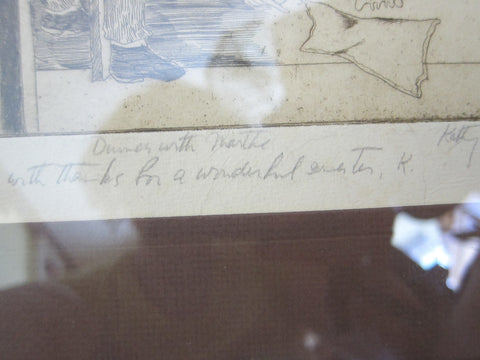 with Marthe Kathy
with thanks for a wonderful semester, K.